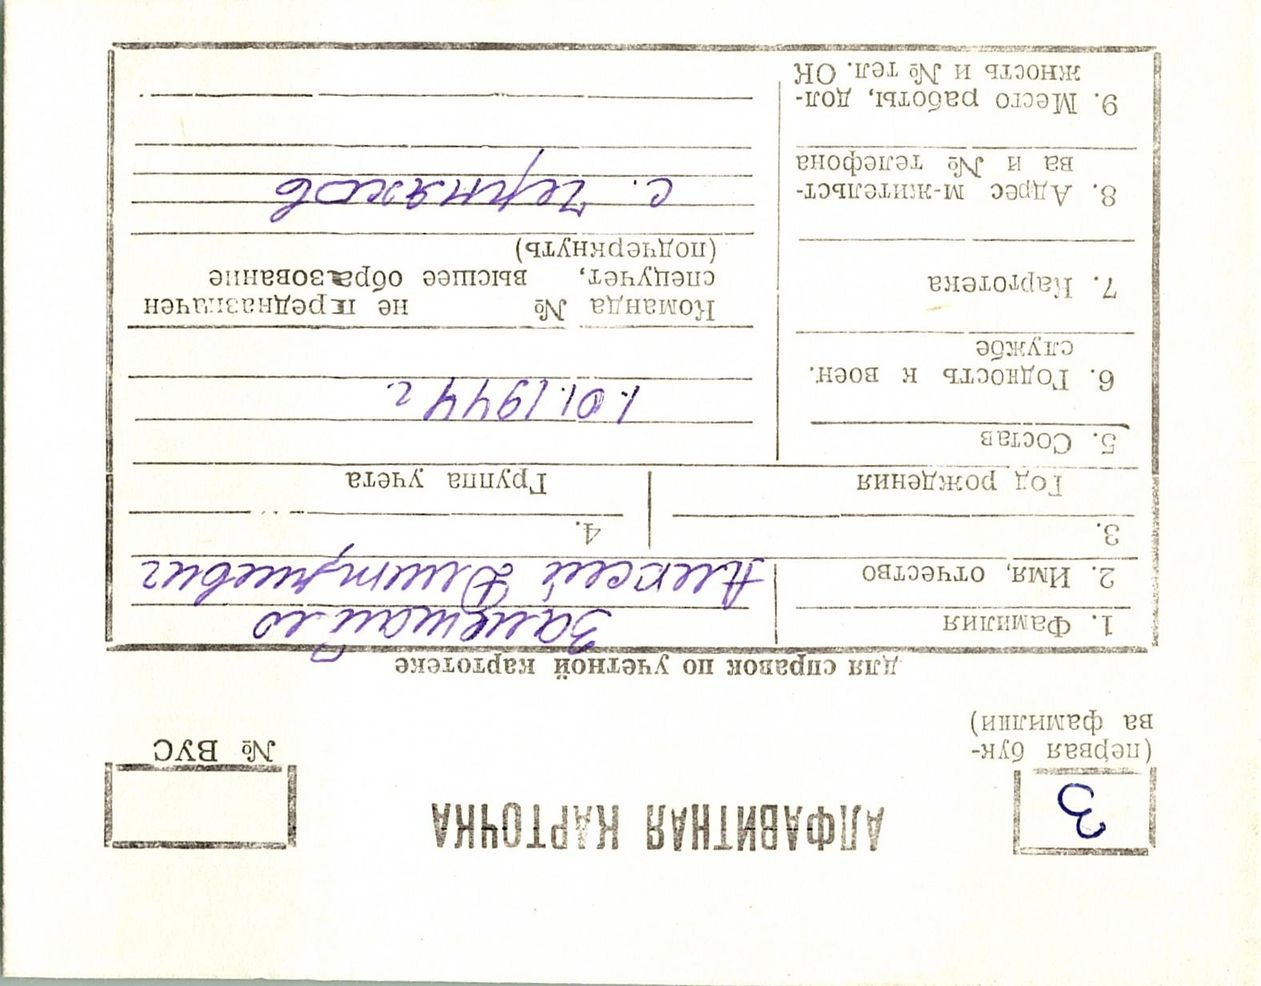 З
АЛФАВИТНАЯ КАРТОЧКА
(первая бук-
ва фамилии)
№ ВУС
для справок по учетной картотеке
1. Фамилия
Замешайло
2. Имя, отчество
Алексей Дмитриевич
3.
Год рождения
4.
Группа учета
5. Состав
1.01.1944 г.
6. Годность к воен.
службе
7. Картотека
Команда № не предназначен
спецучет, высшее образование
(подчеркнуть)
8. Адрес м-жительст-
ва и № телефона
с. Черняхов
9. Место работы, дол-
жность и № тел. ОК